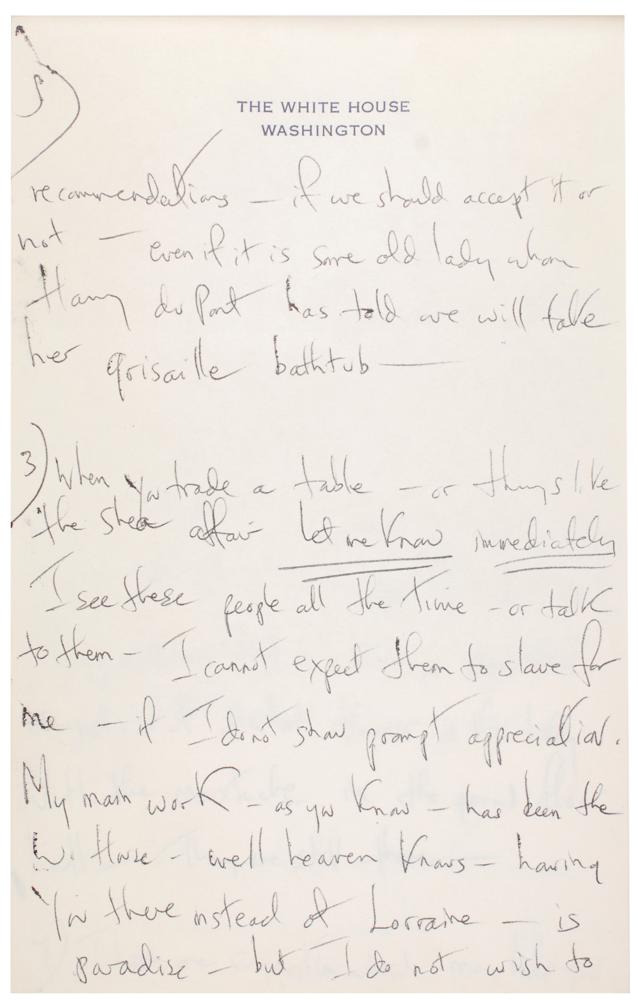 5
THE WHITE HOUSE
WASHINGTON
recommendations — if we should accept it or
not — even if it is some old lady whom
Harry du Pont has told we will take
her grisaille bathtub —
3) When you trade a table — or things like
the Shea affair let me know immediately
I see these people all the time - or talk
to them - I cannot expect them to slave for
me - if I do not show prompt appreciation.
My main work - as you know - has been the
W. House - well heaven knows - having
you there instead of Lorraine - is
paradise - but I do not wish to